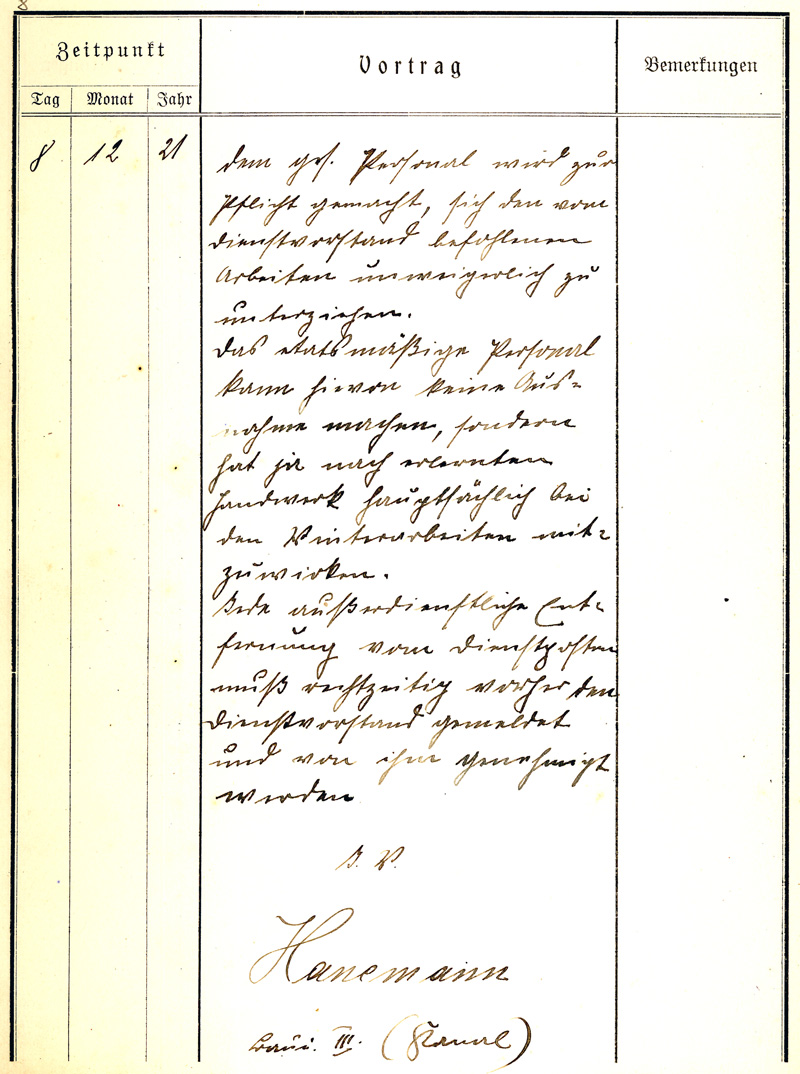 8
Zeitpunkt
Vortrag
Bemerkungen
Tag Monat Jahr
8 12 21
dem ges. Personal wird zur
Pflicht gemacht, sich den vom
Dienstvorstand befohlenen
Arbeiten unweigerlich zu
unterziehen.
Das etatsmäßige Personal
kann hievon keine Aus-
nahme machen, sondern
hat je nach erlernten
Handwerk hauptsächlich bei
den Winterarbeiten mit-
zuwirken.
Jede außerdienstliche Ent-
fernung vom Dienstposten
muß rechtzeitig vorher dem
Dienstvorstand gemeldet
und von ihm genehmigt
werden
I. V.
Hanemann
Baui. III. (Kanal)